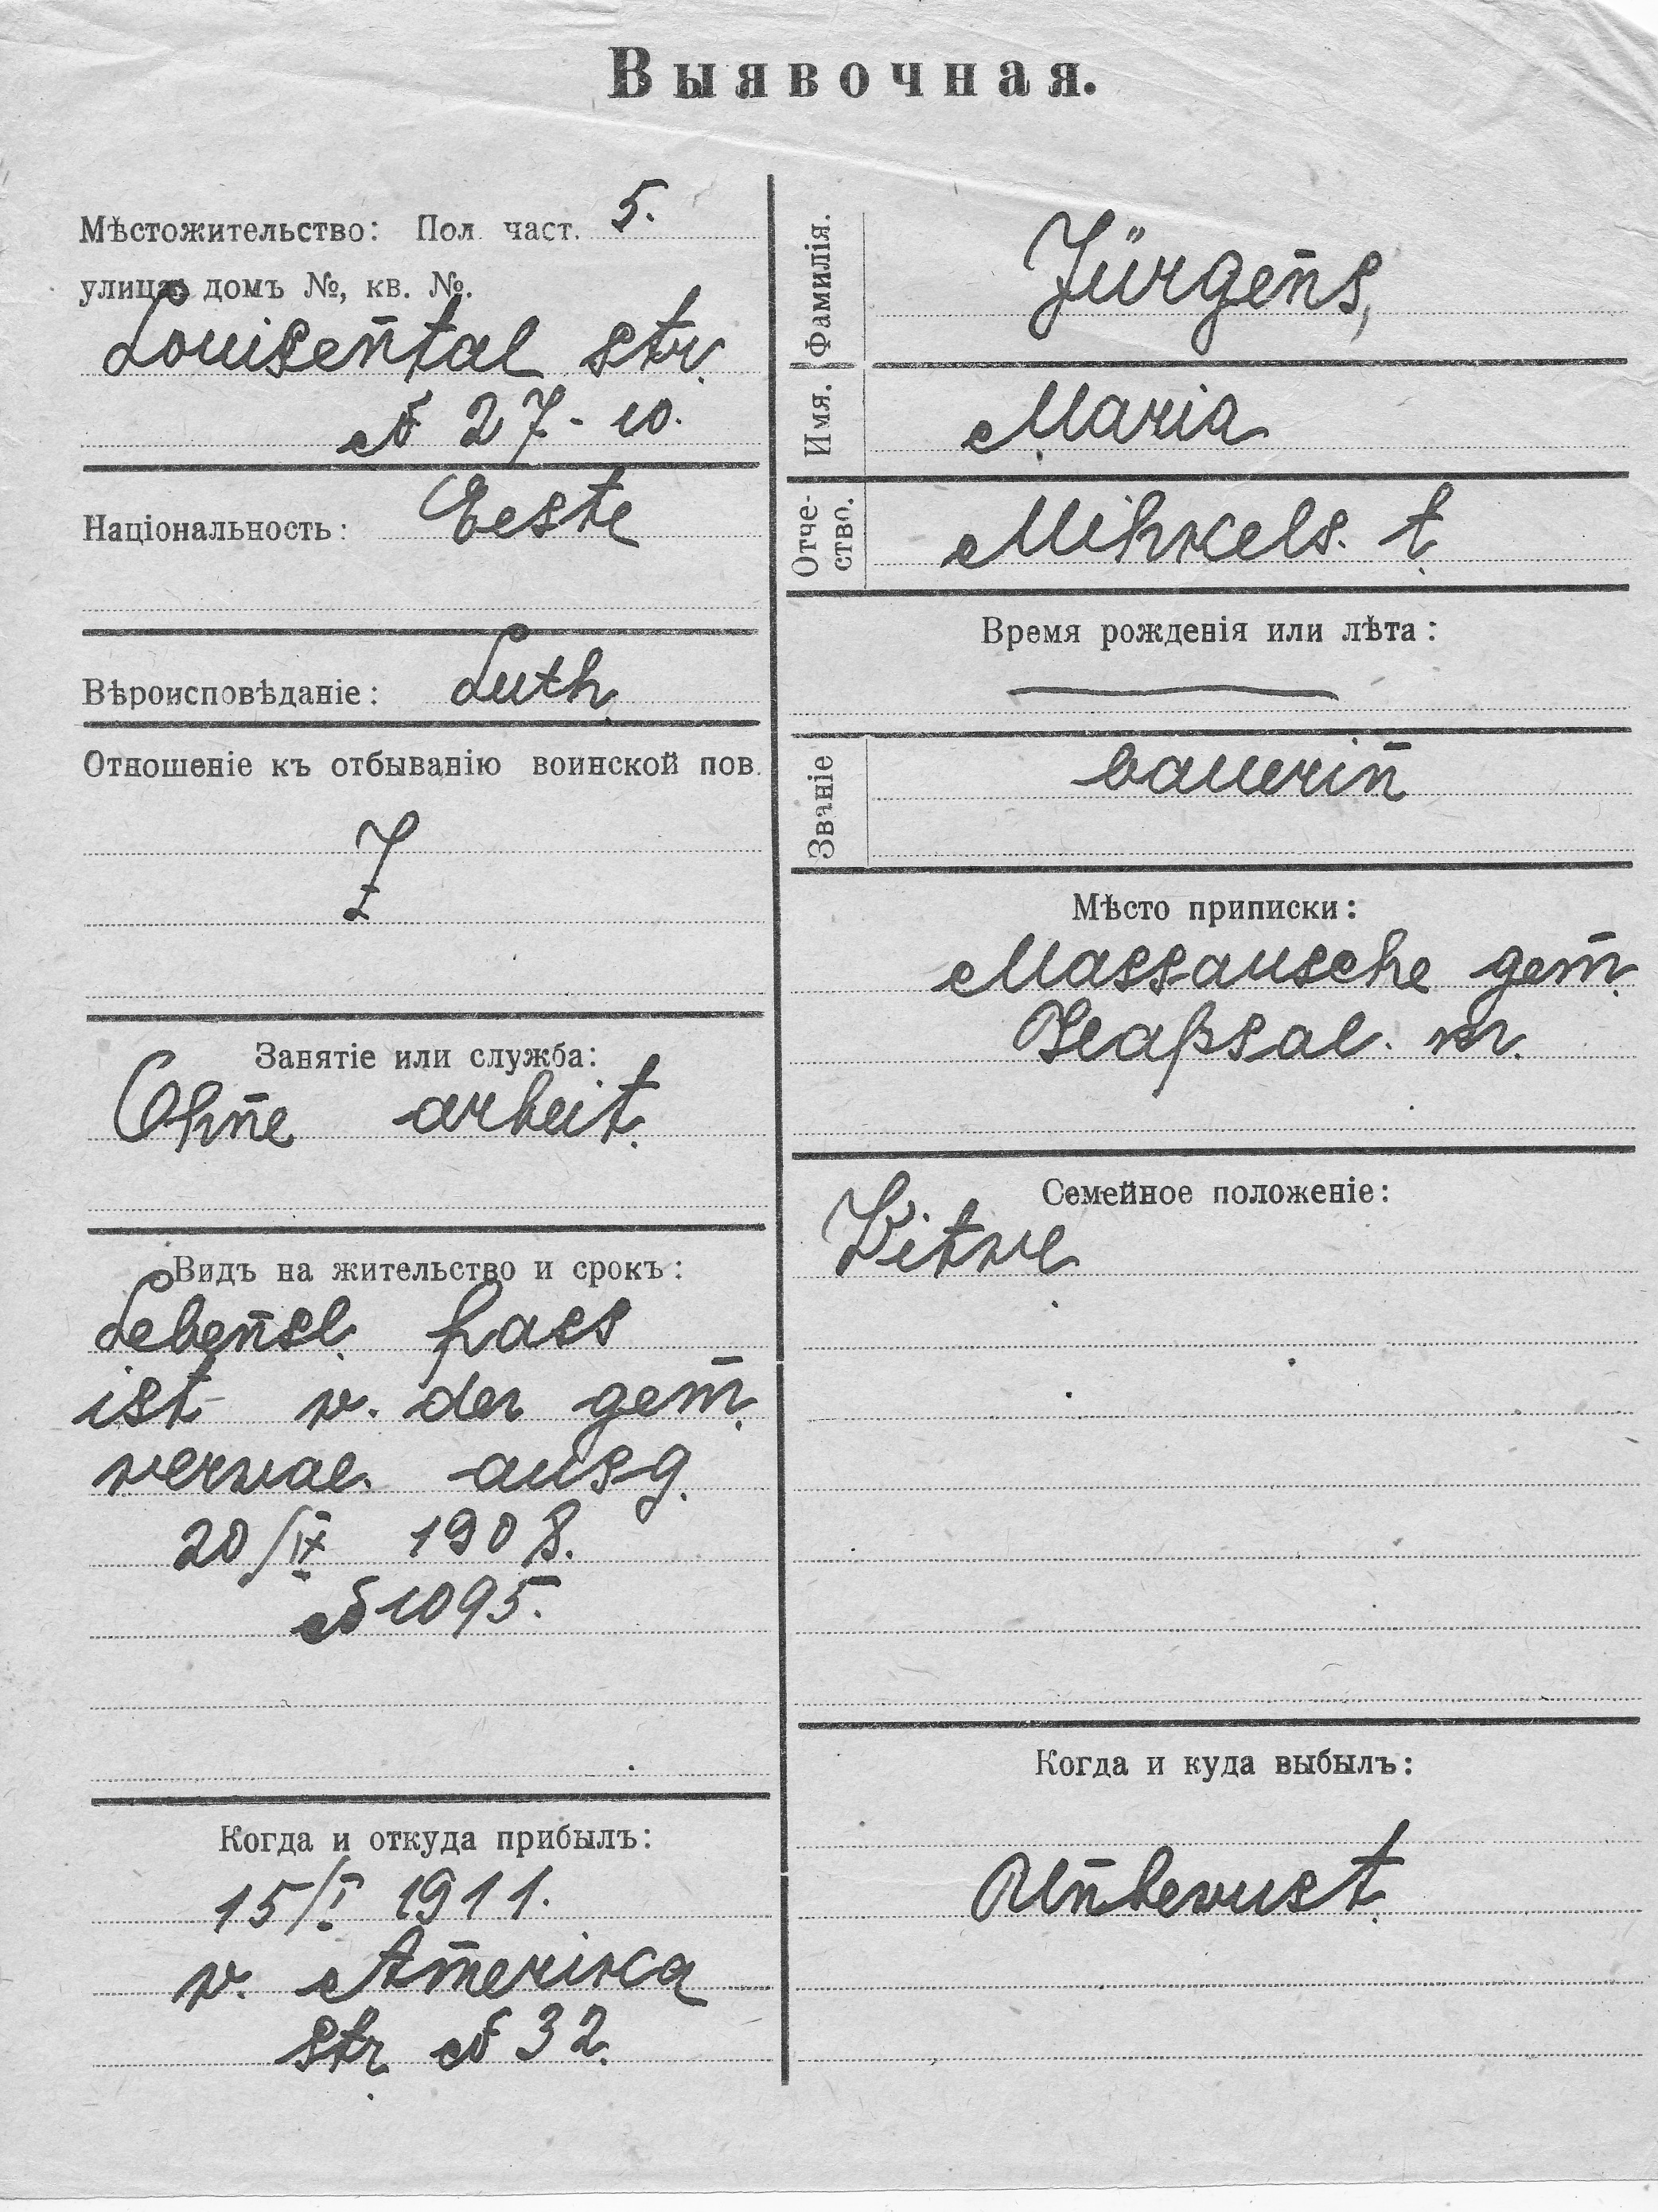 Выявочная.
Мѣстожительство: Пол. част. 5.
улица, домъ №, кв. №.
Louisental str.
№ 27-10.
Національность: Eeste
Вѣроисповѣданіе: Luth.
Отношеніе къ отбыванію воинской пов.
Занятіе или служба:
Ohne arbeit.
Видъ на жительство и срокъ:
Lebensl. pass
ist v. der gem.
verwal. ausg.
20/IX 1908.
№ 1095.
Когда и откуда прибылъ:
15/I 1911.
v. Amerika
str. № 32.
Фамилія. Jürgens,
Имя. Maria
Отче-
ство. Mihkels. t.
Время рожденія или лѣта:
Званіе bauerin
Мѣсто приписки:
Massausche gem.
Hapsal. kr.
Семейное положеніе:
Witwe
Когда и куда выбылъ:
Unbewust.